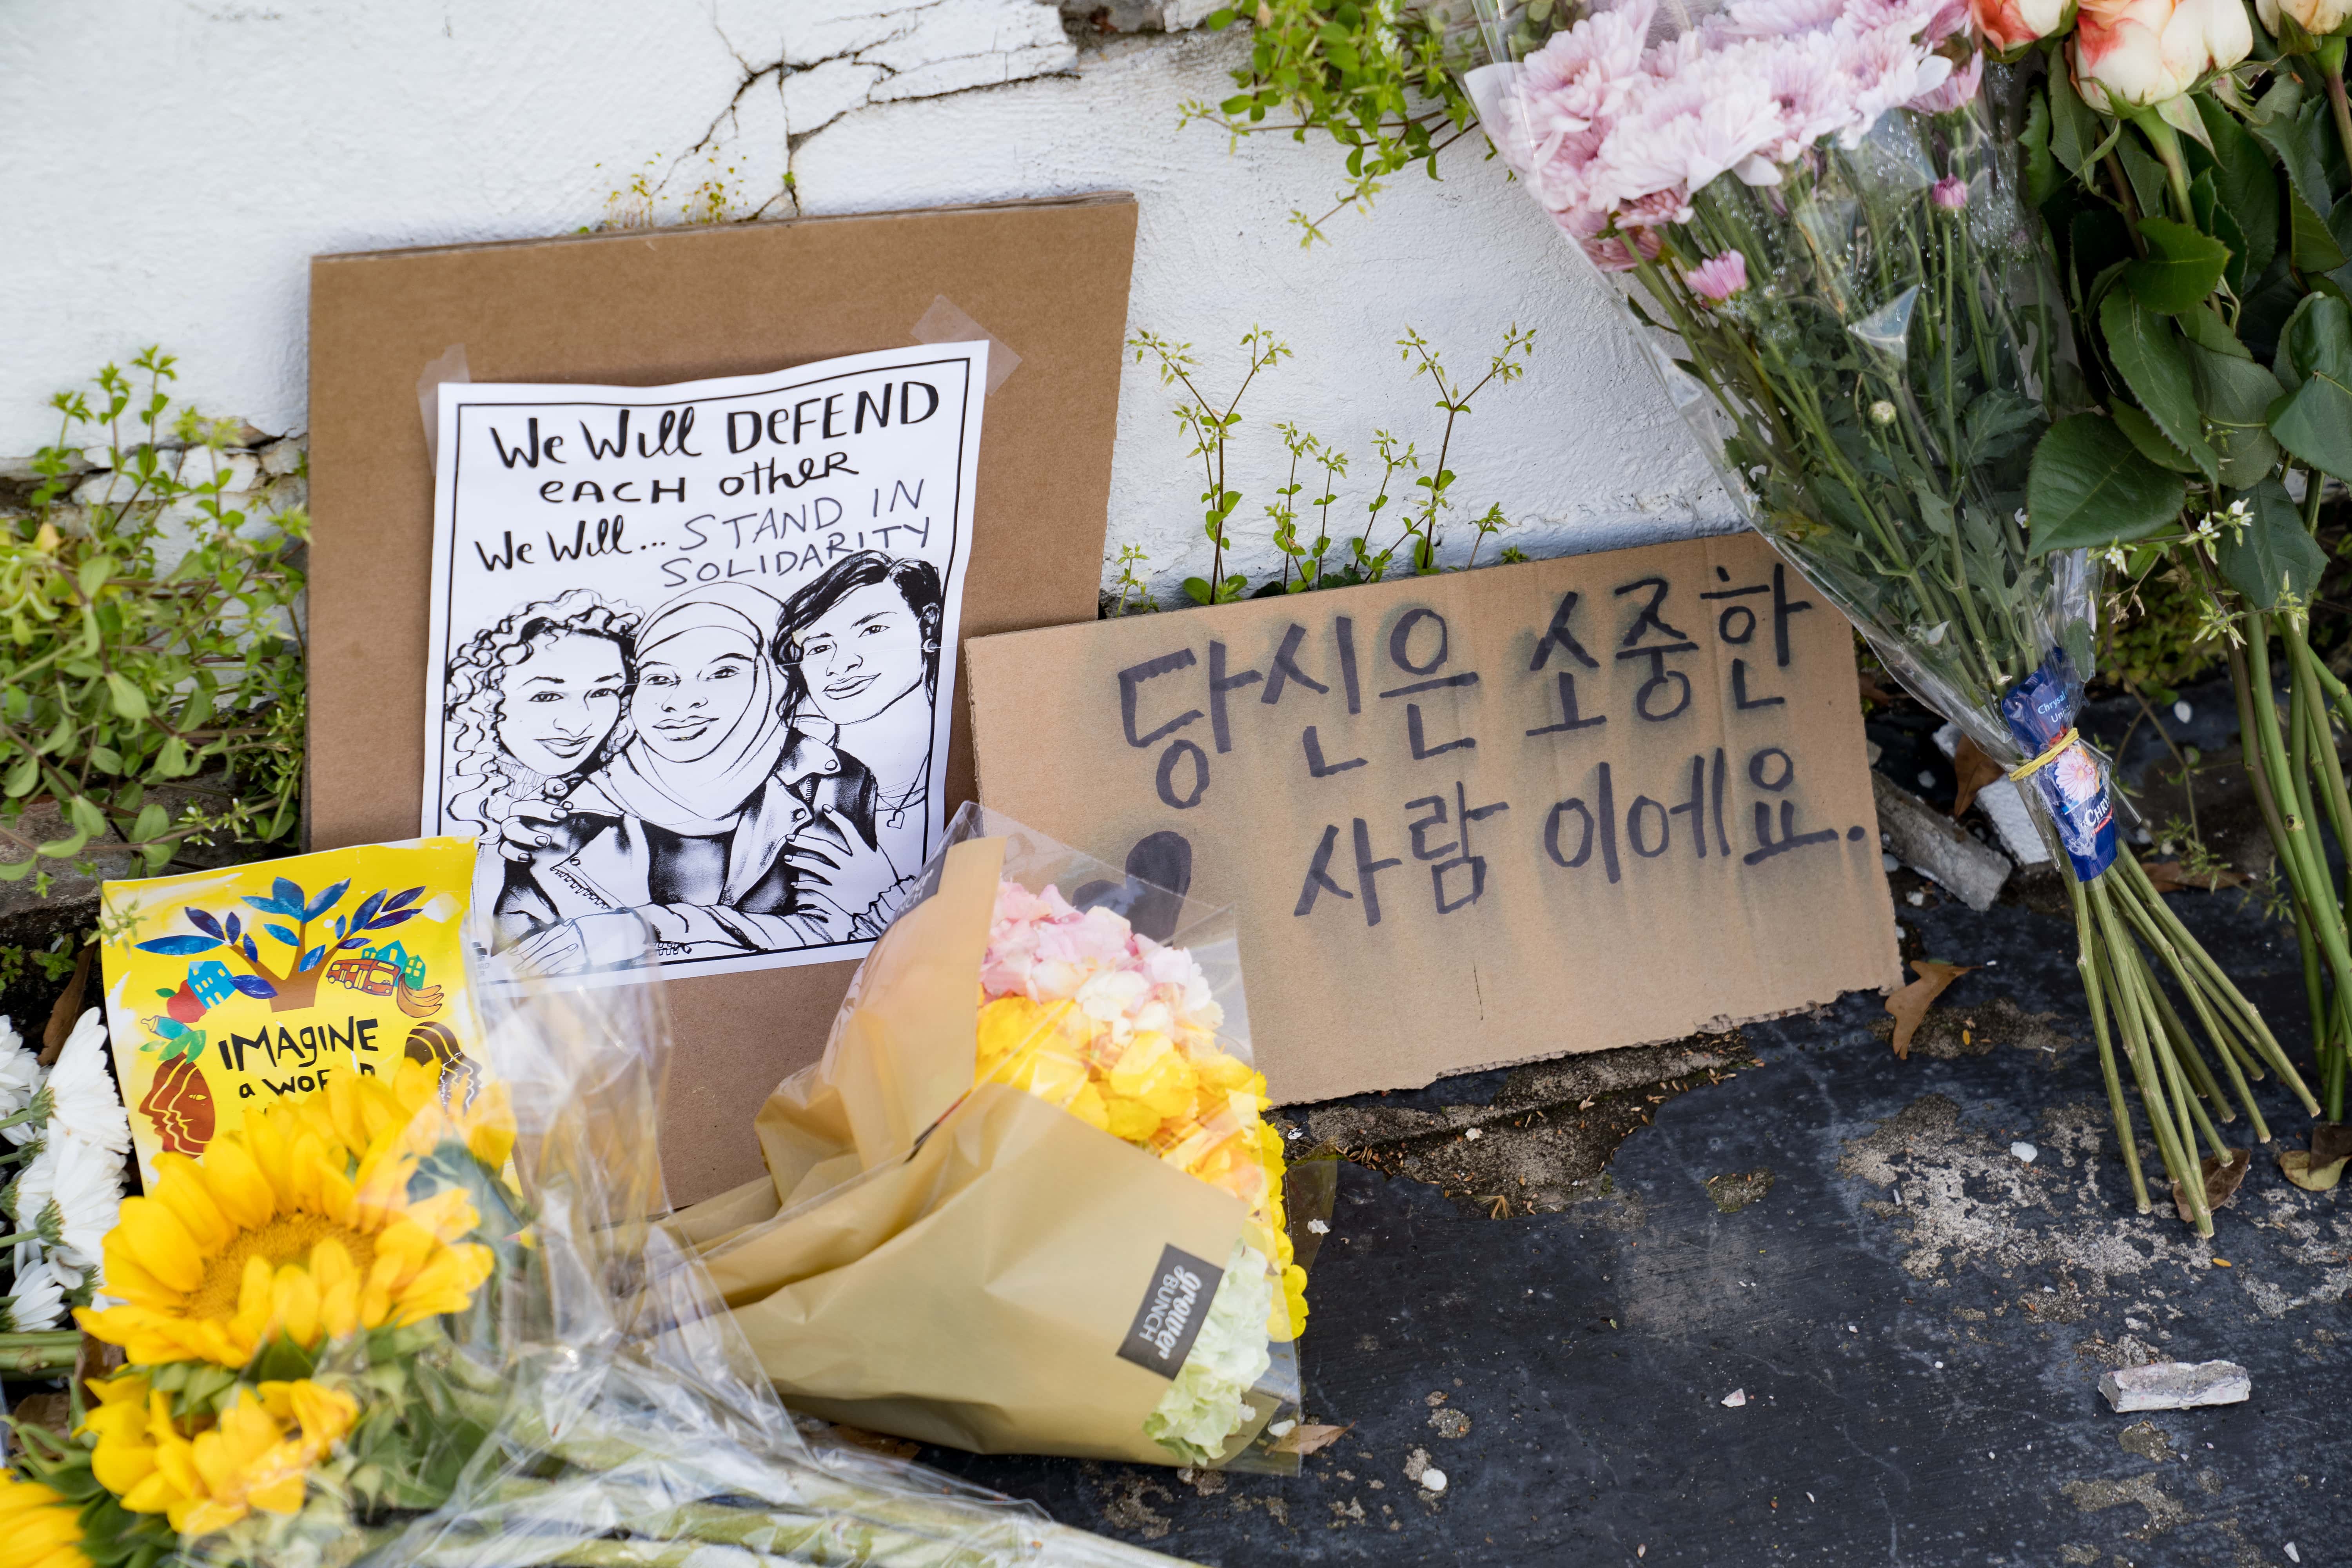 We Will DEFEND
EACH other
We Will... STAND IN
SOLIDARITY
당신은 소중한
사람 이에요.
IMAGINE
a WORLD
grower
BUNCH